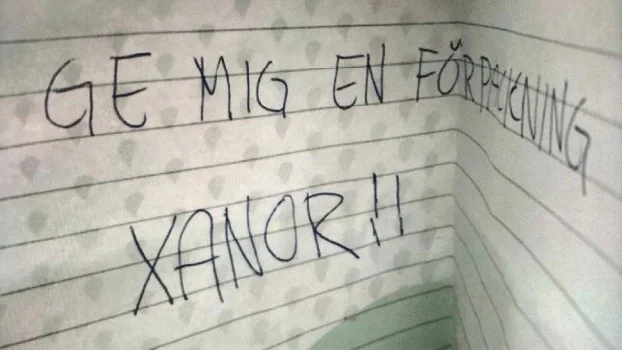 GE MIG EN FÖRPACKNING
XANOR!!